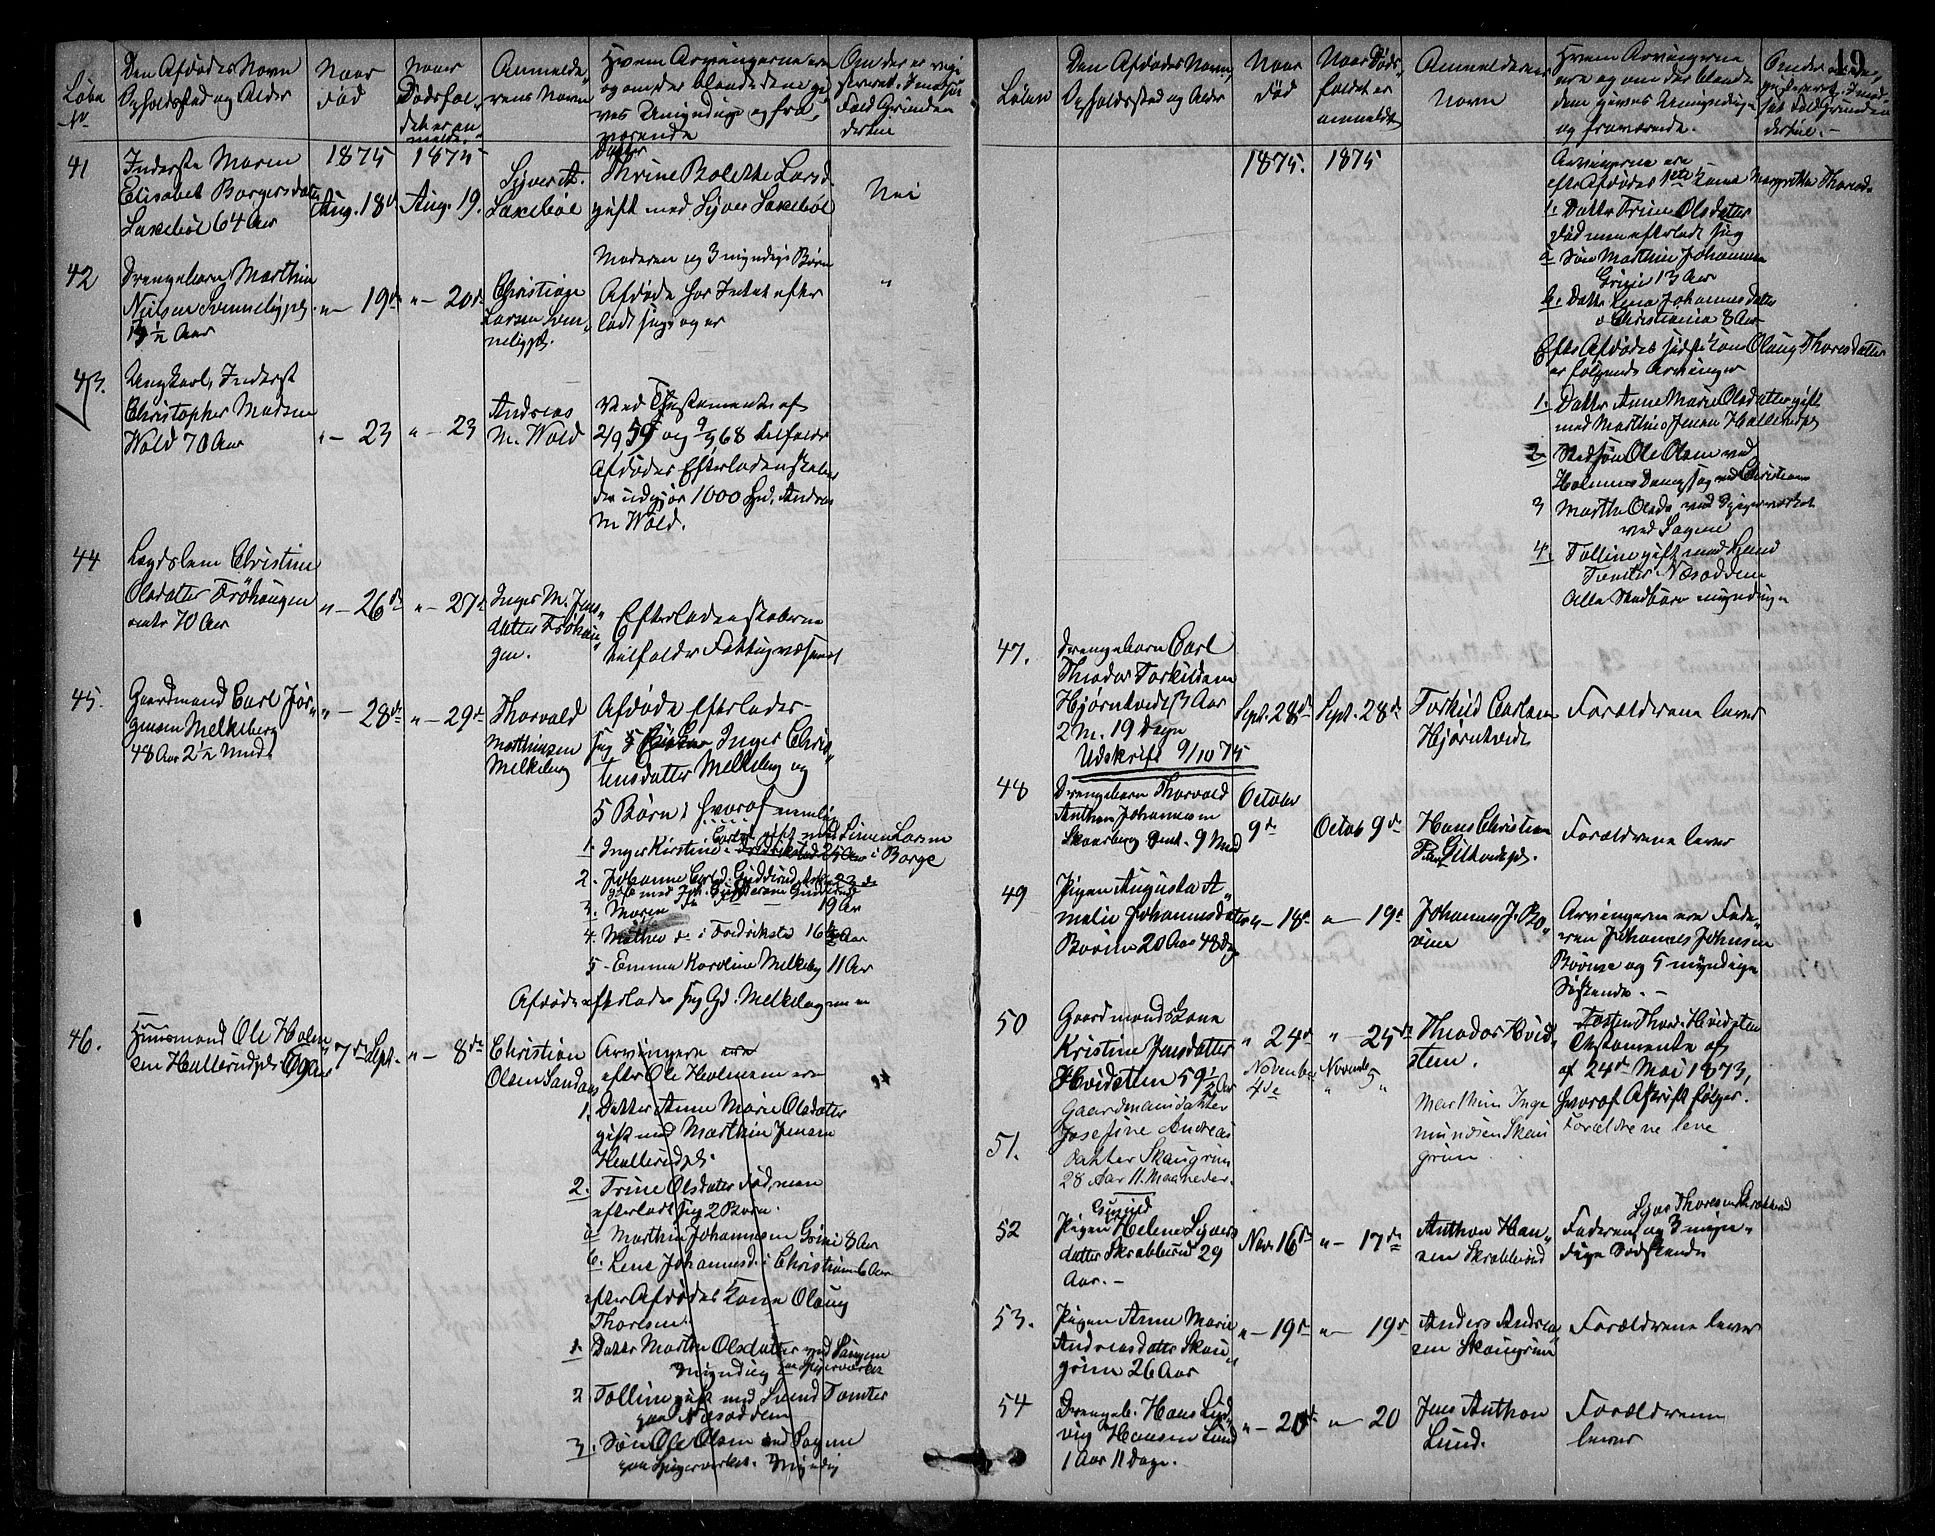 19
Løbe
Nr
Den Afdødes Navn
Opholdssted og Alder
Naar
død
Naar
Dødsfal-
det er an-
meldt
Anmelde-
rens Navn
Hvem Arvingerne ere
og om der blandt dem gi-
ves Umyndige og fra-
værende
Om der er
41
Inderste Maren
Elisabet Borgersdatter
Laxebøl 64 Aar
1875
Aug. 18de
1875
Aug. 19.
Syver A.
Laxebøl
Datter
Thrine Bolette Larsd.
gift med Syver Laxebøl
Nei
42
Drengebarn Marthin
Nielsen
1/2 Aar
" — 19de
" — 20de
Christiane
Larsen
Moderen og 3 myndige Børn
Afdøde har Intet efter
ladt sig
"
43.
Ungkarl, Inderst
Christopher Madsen
Wold 70 Aar
" — 23
" — 23
Andreas
M. Wold
Ved Testamente af
2/9 59 og 9/9 68 tilfalder
Afdødes Efterladenskaber
der udgjør 1000 Spd. Andreas
M Wold.
44
Lægdslem Christine
Olsdatter Frøhaugen
70 Aar
" — 26de
" — 27de
Inger M. Jens
datter Frøhau-
gen.
Efterladenskaberne
tilfalder Fattigvæsenet
45.
Gaardmand Carl Jør-
gensen Melkeberg
48 Aar 2 1/2 Mned
" — 28de
" — 29de
Thorvald
Marthinsen
Melkeberg
Afdøde Efterlader
sig Inger Chris-
tensdatter Melkeberg og
5 Børn, hvoraf nemlig
1. Inger Kirstine Carlsd. gift med Simen Larsen
i Borge
2. Johanne Carlsd.
3. Maren 19 Aar
4. Mathea do i Fredriksta 16 Aar
5 - Emma Karoline Melkeberg 11 Aar
Afdøde efterlader sig Gd. Melkeberg
46.
Huusmand Ole Holm
sen Hallerudpl. 69 Aar
7de Sept.
" — 8de
Christian
Olsen Sandaas
Arvingerne ere
efter Ole Holmsen ere
1. Datter Anne Marie Olsdatter
gift med Marthin Jensen
Hallerudpl.
2. Trine Olsdatter død, men
efterladt sig 2 Børn.
a Marthin Johannesen Grini 8 Aar
b. Lene Johannesd. i Christiania 6 Aar
efter Afdødes Kone Olaug
Thoresen.
1. Datter Marthe Olsdatter ved Sagene
Myndig
2 Tolline gift med Svend Tomter
paa Næsodden
3. Søn Ole Olsen ved Sagene
paa Spigerverket. Myndig
Løben
Den Afdødes Navn
Opholdssted og Alder
Naar
død
Naar Døds-
faldet er
anmeldt
Anmelderens
Navn
Hvem Arvingerne
ere og om der blandt
dem gives Umyndige
og fraværende.
1875.
1875
Arvingerne ere
efter Afdødes 1ste Kone Margrethe Thoresd.
1. Datter Trine Olsdatter
død men efterladt sig
a Søn Marthin Johannesen
Grini 13 Aar
b. Datter Lena Johannesdatter
i Christiania 8 Aar
Efter Afdødes sidste Kone Olaug Thoresdatter
er følgende Arvinger
1. Datter Anne Marie Olsdatter gift
med Marthin Jensen Hallerudpl.
2 Stedsøn Ole Olsen ved
Holmens Dampsag ved Christiania
3 Marthe Olsd. ved Spigerverket
ved Sagene
4. Tolline gift med Svend
Tomter Næsodden
Alle Stedbørn myndige
47.
Drengebarn Carl
Theodor Torkildsen
Hjørntvedt 3 Aar
2 M. 19 Dage
Udskrift 9/10 75
Sept. 28de
Sept. 28de
Torkild Carlsen
Hjørntvedt
Forældrene lever
48
Drengebarn Thorvald
Anthon Johannesen
Skaarberg 9 Mned
October
9de
Octob 9de
Hans Christian
Forældrene lever
49
Pigen Augusta A-
malie Johannesdatter
Bovim 20 Aar 48 Dage
" — 18de
" — 19de
Johannes J. Bo-
vim
Arvingerne ere Fade-
ren Johannes Johnsen
og 5 myndige
Søskende. —
50
Gaardmandskone
Kristine Jensdatter
Hvidsten 59 1/2 Aar
" 24de
" — 25de
Theodor Hvid-
sten.
Testamente
af 24de Mai 1873,
hvoraf Afskrift følger.
51.
Gaardmansdatter
Josefine Andreas
datter Skaugrim
28 Aar 11. Maaneder.
November
4de
Novemb
5
"
Marthin Inge
mundsen Skau
grim.
Forældrene leve
52
Gunild
Pigen Helene Syvers
datter Skrabberud 29
Aar. —
Nov. 16de
" — 17de
Anthon Han-
sen Skrabberud
Syver Thoresen Skrabberud
Faderen, og 3 myn-
dige Søskende
53.
Pigen Anne Marie
Andreasdatter Skau-
grim 26 Aar
" — 19de
" — 19de
Anders Andrea
sen Skaugrim
Forældrene lever
54
Drengeb. Hans Lud
vig Hansen Lund
1 Aar 11 Dage.
" — 20de
" — 20
Jens Anthon
Lund.
Forældrene
lever